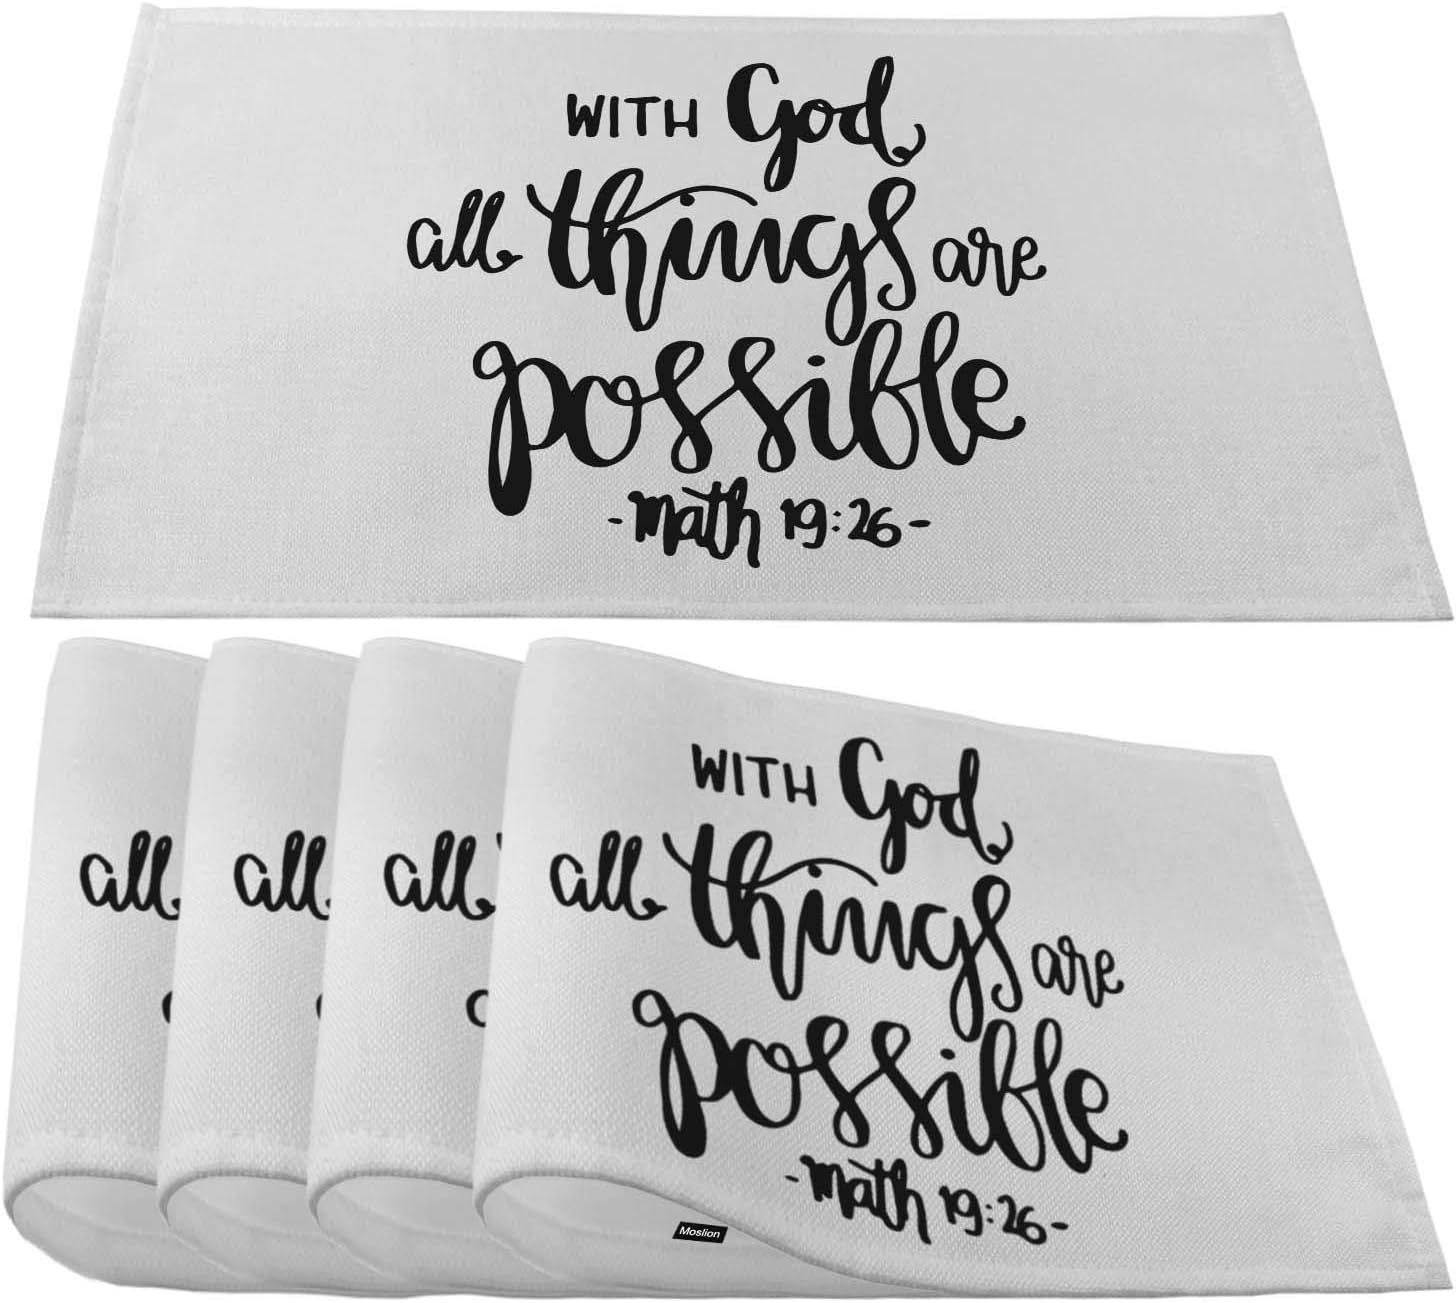 WITH God
all things are
possible
-Math 19:26-
all
all
all
WITH God
all things are
possible
-Math 19:26-
Moslion